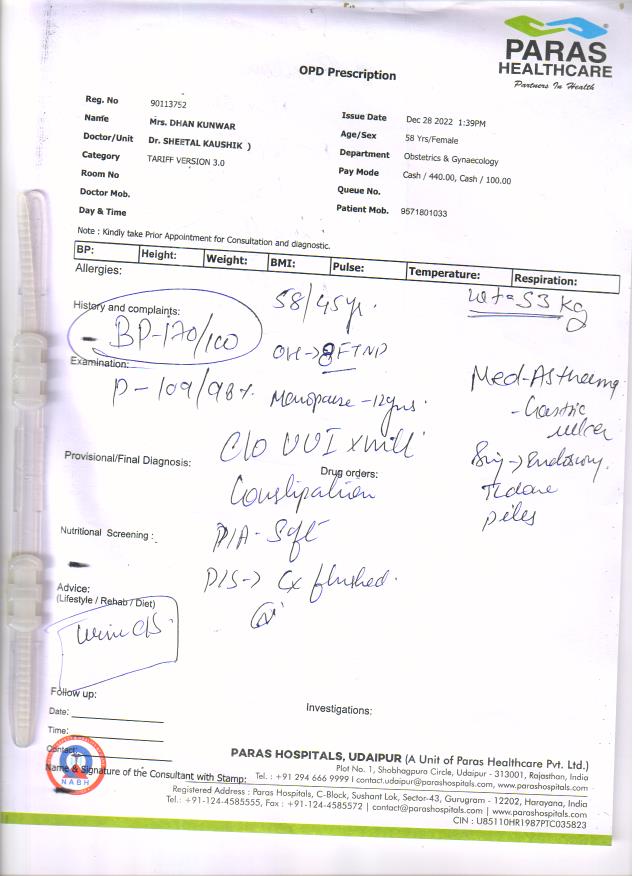 PARAS
HEALTHCARE
Partners In Health
OPD Prescription
Reg. No 90113752
Name Mrs. DHAN KUNWAR
Doctor/Unit Dr. SHEETAL KAUSHIK )
Category TARIFF VERSION 3.0
Room No
Doctor Mob.
Day & Time
Issue Date Dec 28 2022 1:39PM
Age/Sex 58 Yrs/Female
Department Obstetrics & Gynaecology
Pay Mode Cash / 440.00, Cash / 100.00
Queue No.
Patient Mob. 9571801033
Note : Kindly take Prior Appointment for Consultation and diagnostic.
BP: Height: Weight: BMI: Pulse: Temperature: Respiration:
Allergies:
58/45yr. wt=53 kg
History and complaints:
BP-170/100
OH→8FTND
Examination:
P-109/98%
Menopause-12yrs.
Med-Asthama
-Gastric
ulcer
C/O UUI
Provisional/Final Diagnosis:
Drug orders:
Constipation
piles
Nutritional Screening :
P/A- Soft
P/S→ Cx flushed.
Advice:
(Lifestyle / Rehab / Diet)
Urine C/S
Follow up:
Date:
Time:
Contact:
Investigations:
NABH
Name & Signature of the Consultant with Stamp:
PARAS HOSPITALS, UDAIPUR (A Unit of Paras Healthcare Pvt. Ltd.)
Plot No. 1, Shobhagpura Circle, Udaipur - 313001, Rajasthan, India
Tel. : +91 294 666 9999 I contact.udaipur@parashospitals.com, www.parashospitals.com
Registered Address : Paras Hospitals, C-Block, Sushant Lok, Sector-43, Gurugram - 12202, Harayana, India
Tel.: +91-124-4585555, Fax : +91-124-4585572 | contact@parashospitals.com | www.parashospitals.com
CIN : U85110HR1987PTC035823